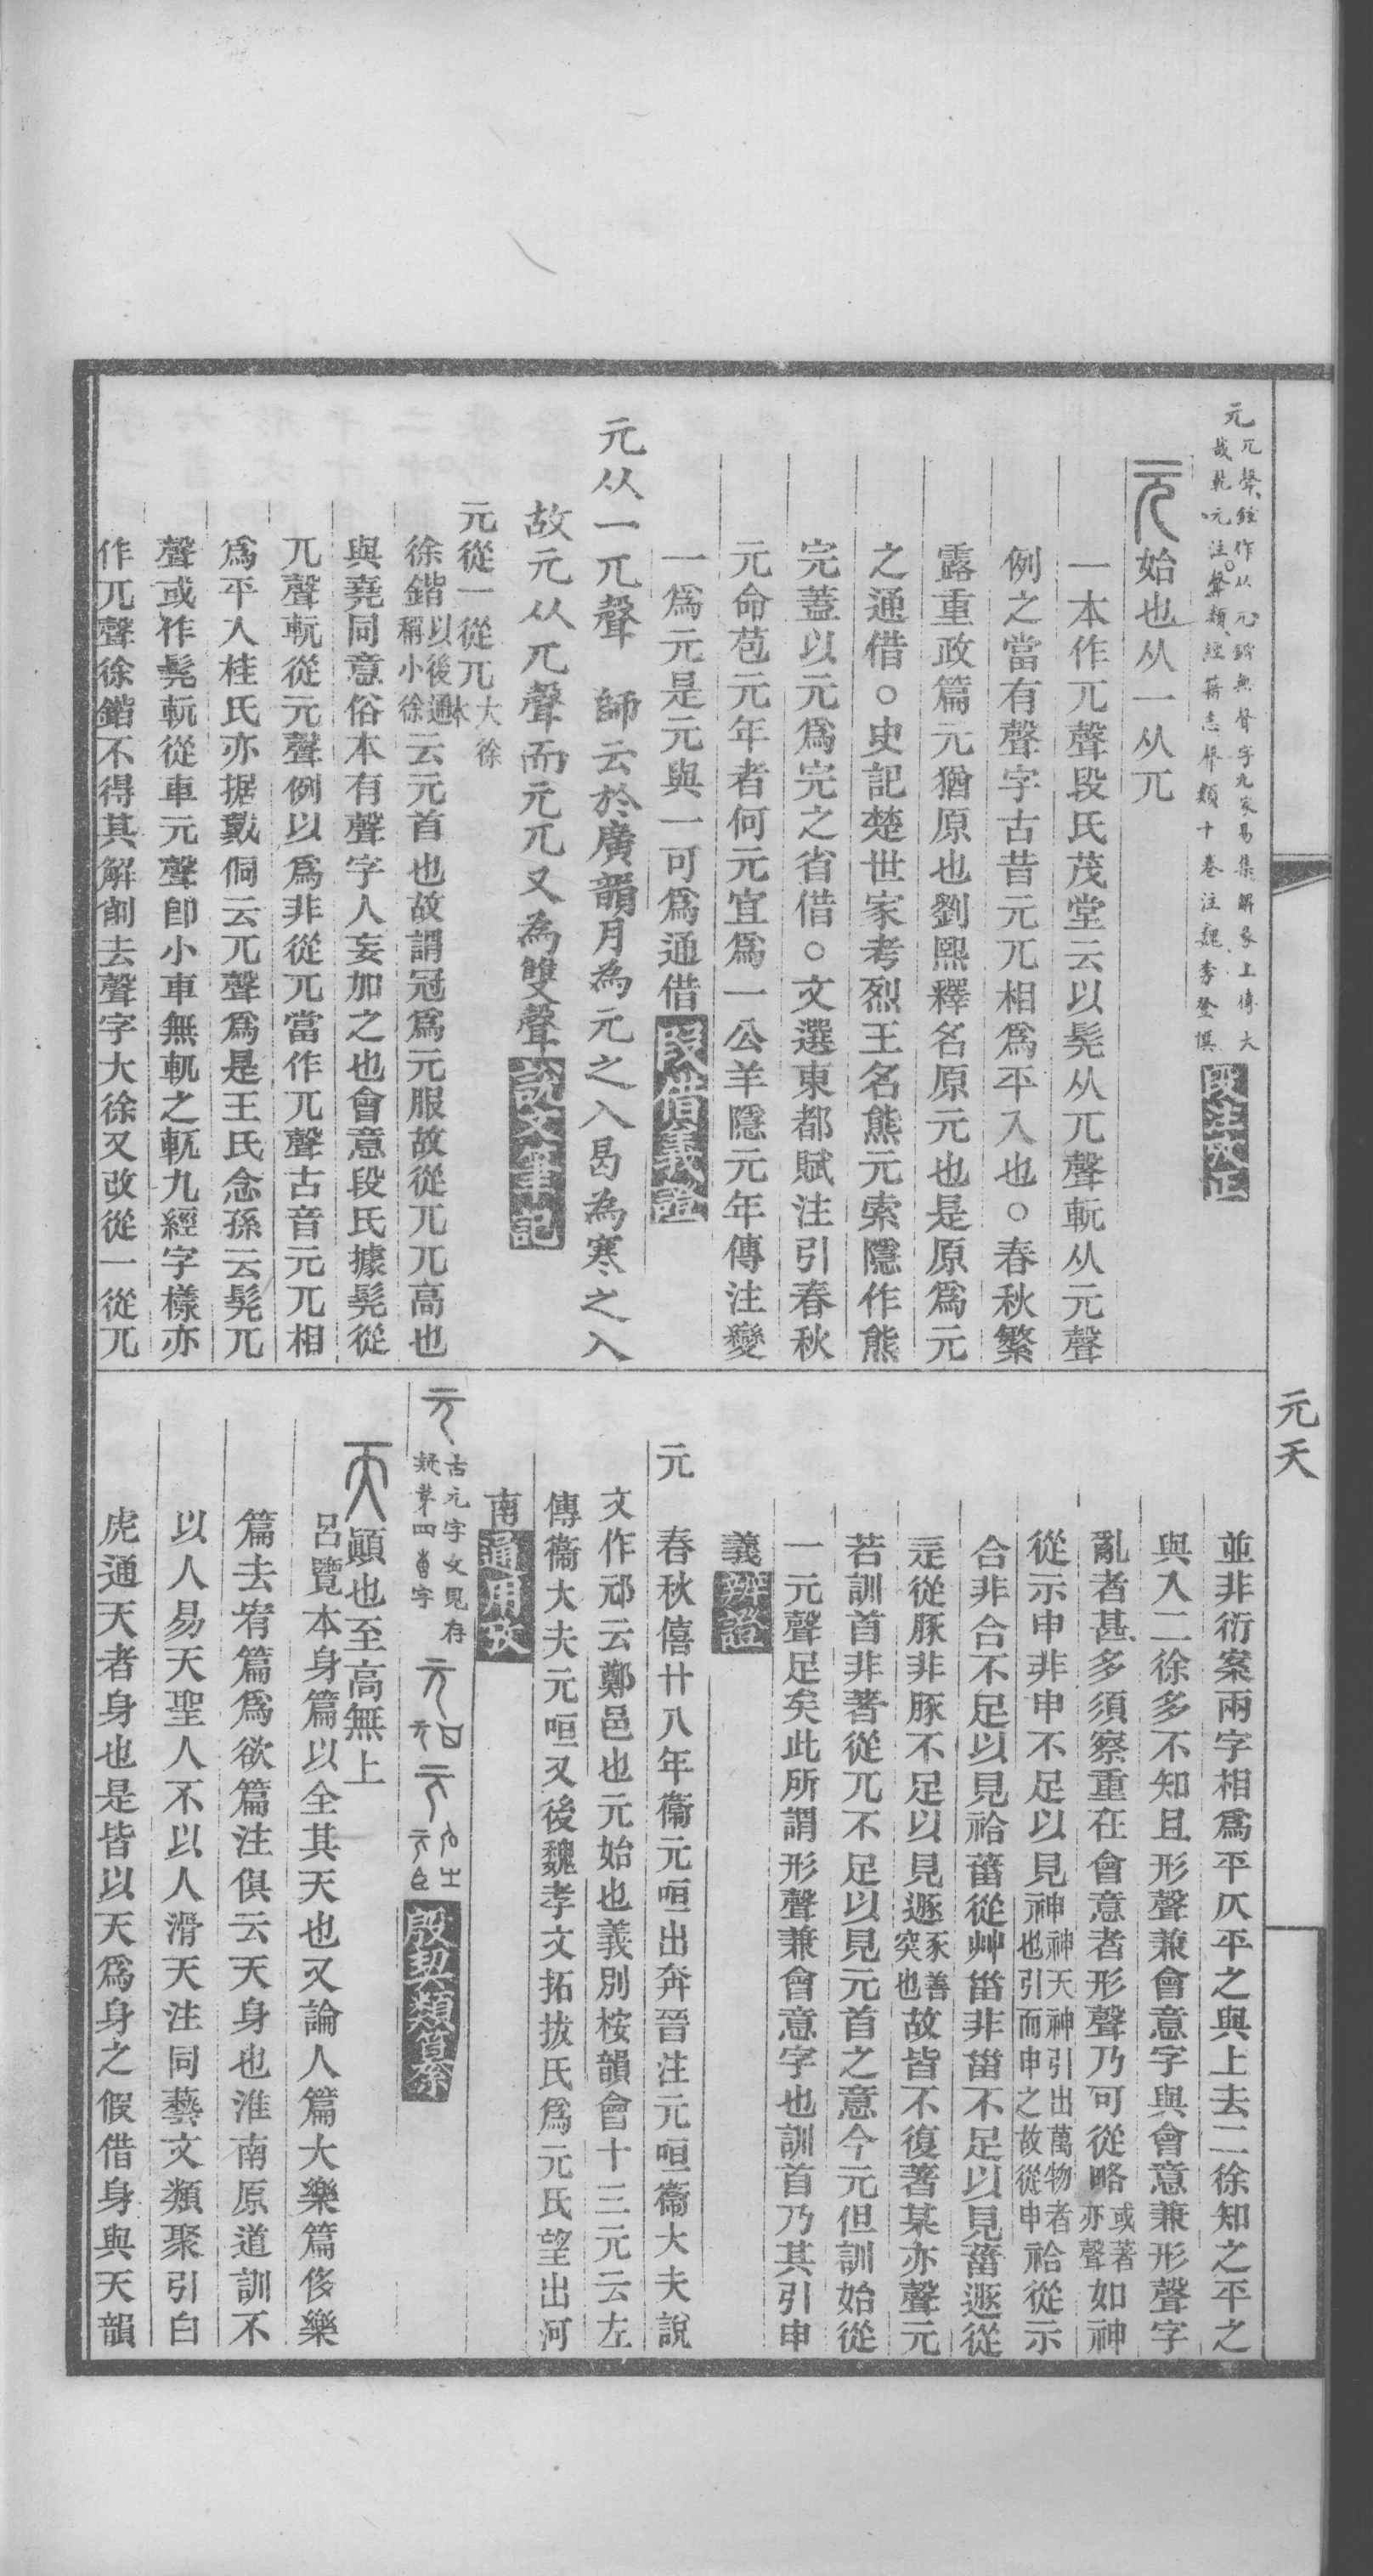 元兀聲鉉作从元鍇無聲字九家易集解彖上傳大
哉乾元注。聲類經籍志聲類十卷注魏李登撰
段注攷正
元始也从一从兀
一本作兀聲段氏茂堂云以髡从兀聲軏从元聲
例之當有聲字古昔元兀相爲平入也○春秋繁
露重政篇元猶原也劉熙釋名原元也是原爲元
之通借○史記楚世家考烈王名熊元索隱作熊
完蓋以元爲完之省借○文選東都賦注引春秋
元命苞元年者何元宜爲一公羊隱元年傳注變
一爲元是元與一可爲通借段借義證
元从一兀聲 師云於廣韻月為元之入曷為寒之入
故元从兀聲而元兀又為雙聲說文筆記
元從一從兀大徐本
徐鍇以後通稱小徐云元首也故謂冠爲元服故從兀兀高也
與堯同意俗本有聲字人妄加之也會意段氏據髡從
兀聲軏從元聲例以爲非從兀當作兀聲古音元兀相
爲平入桂氏亦据戴侗云兀聲爲是王氏念孫云髡兀
聲或作髨軏從車元聲卽小車無軏之軏九經字樣亦
作兀聲徐鍇不得其解削去聲字大徐又改從一從兀
元天
並非衍案兩字相爲平仄平之與上去二徐知之平之
與入二徐多不知且形聲兼會意字與會意兼形聲字
亂者甚多須察重在會意者形聲乃可從略或著亦聲如神
從示申非申不足以見神神天神引出萬物者也引而申之故從申祫從示
合非合不足以見祫葘從艸甾非甾不足以見葘遯從
辵從豚非豚不足以見遯豕善突也故皆不復著某亦聲元
若訓首非著從兀不足以見元首之意今元但訓始從
一元聲足矣此所謂形聲兼會意字也訓首乃其引申
義辨證
元 春秋僖廿八年衞元咺出奔晉注元咺衞大夫說
文作邧云鄭邑也元始也義別桉韻會十三元云左
傳衞大夫元咺又後魏孝文拓拔氏爲元氏望出河
南通用攷
古元字文見存
疑弟四
殷契類纂
天顚也至高無上
呂覽本身篇以全其天也又論人篇大樂篇侈樂
篇去宥篇爲欲篇注俱云天身也淮南原道訓不
以人易天聖人不以人滑天注同藝文類聚引白
虎通天者身也是皆以天爲身之假借身與天韻